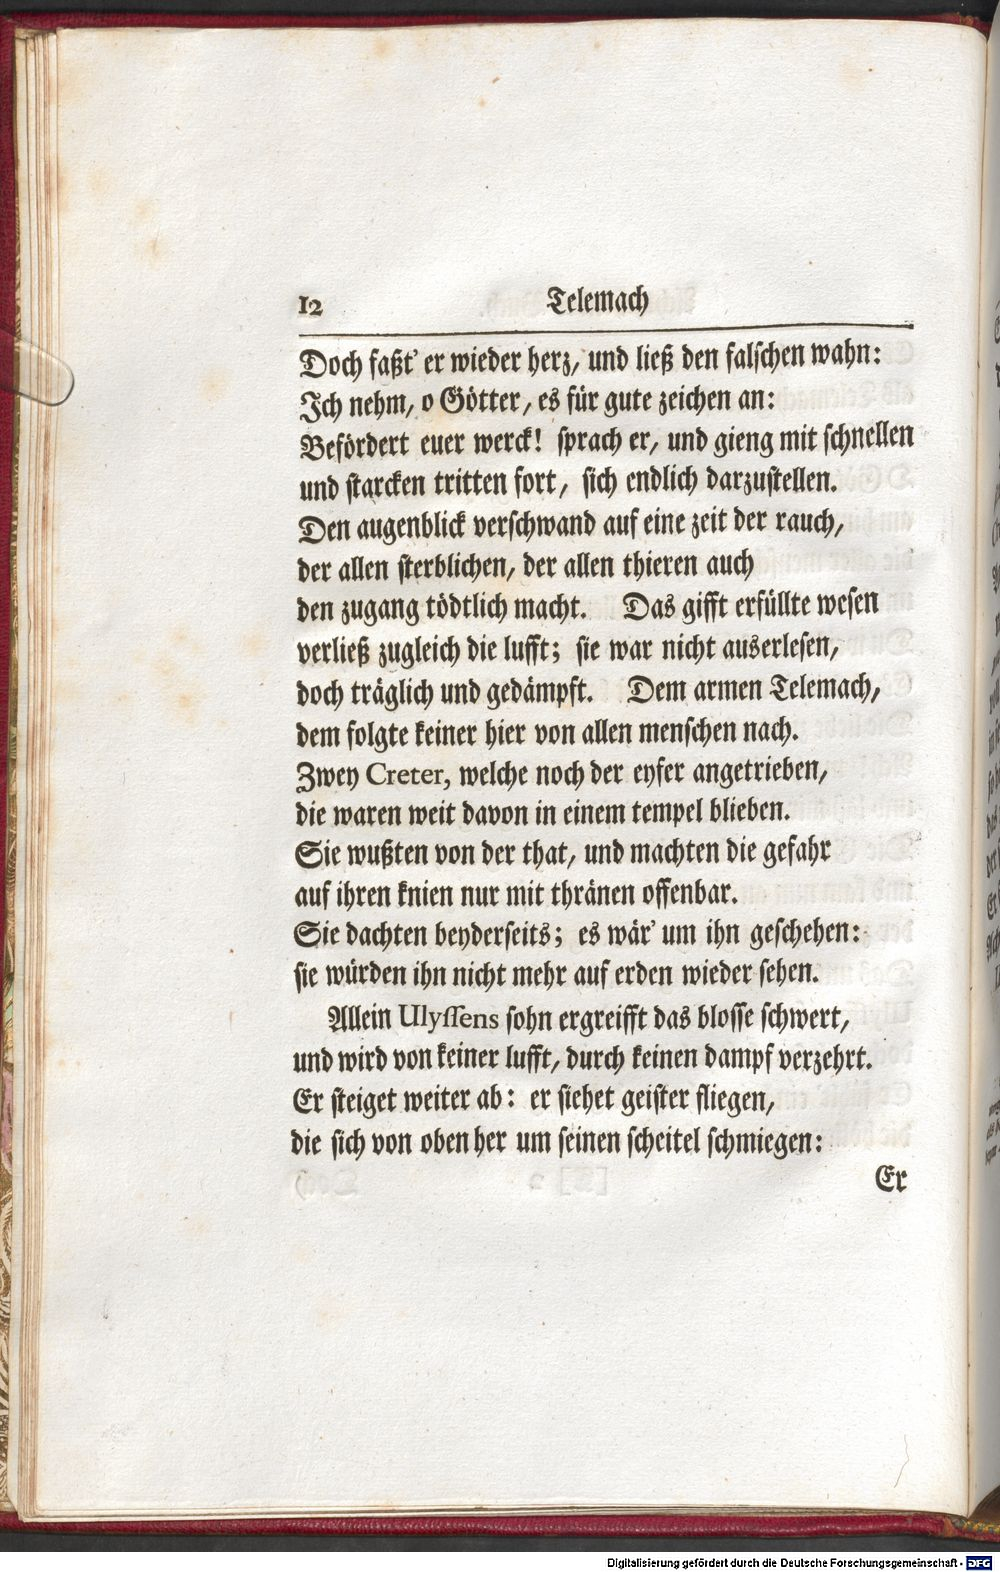 12 Telemach
Doch faßt' er wieder herz, und ließ den falschen wahn:
Ich nehm, o Götter, es für gute zeichen an:
Befördert euer werck! sprach er, und gieng mit schnellen
und starcken tritten fort, sich endlich darzustellen.
Den augenblick verschwand auf eine zeit der rauch,
der allen sterblichen, der allen thieren auch
den zugang tödtlich macht. Das gifft erfüllte wesen
verließ zugleich die lufft; sie war nicht auserlesen,
doch träglich und gedämpft. Dem armen Telemach,
dem folgte keiner hier von allen menschen nach.
Zwey Creter, welche noch der eyfer angetrieben,
die waren weit davon in einem tempel blieben.
Sie wußten von der that, und machten die gefahr
auf ihren knien nur mit thränen offenbar.
Sie dachten beyderseits; es wär' um ihn geschehen:
sie würden ihn nicht mehr auf erden wieder sehen.
Allein Ulyssens sohn ergreifft das blosse schwert,
und wird von keiner lufft, durch keinen dampf verzehrt.
Er steiget weiter ab: er siehet geister fliegen,
die sich von oben her um seinen scheitel schmiegen:
Er
Digitalisierung gefördert durch die Deutsche Forschungsgemeinschaft - DFG